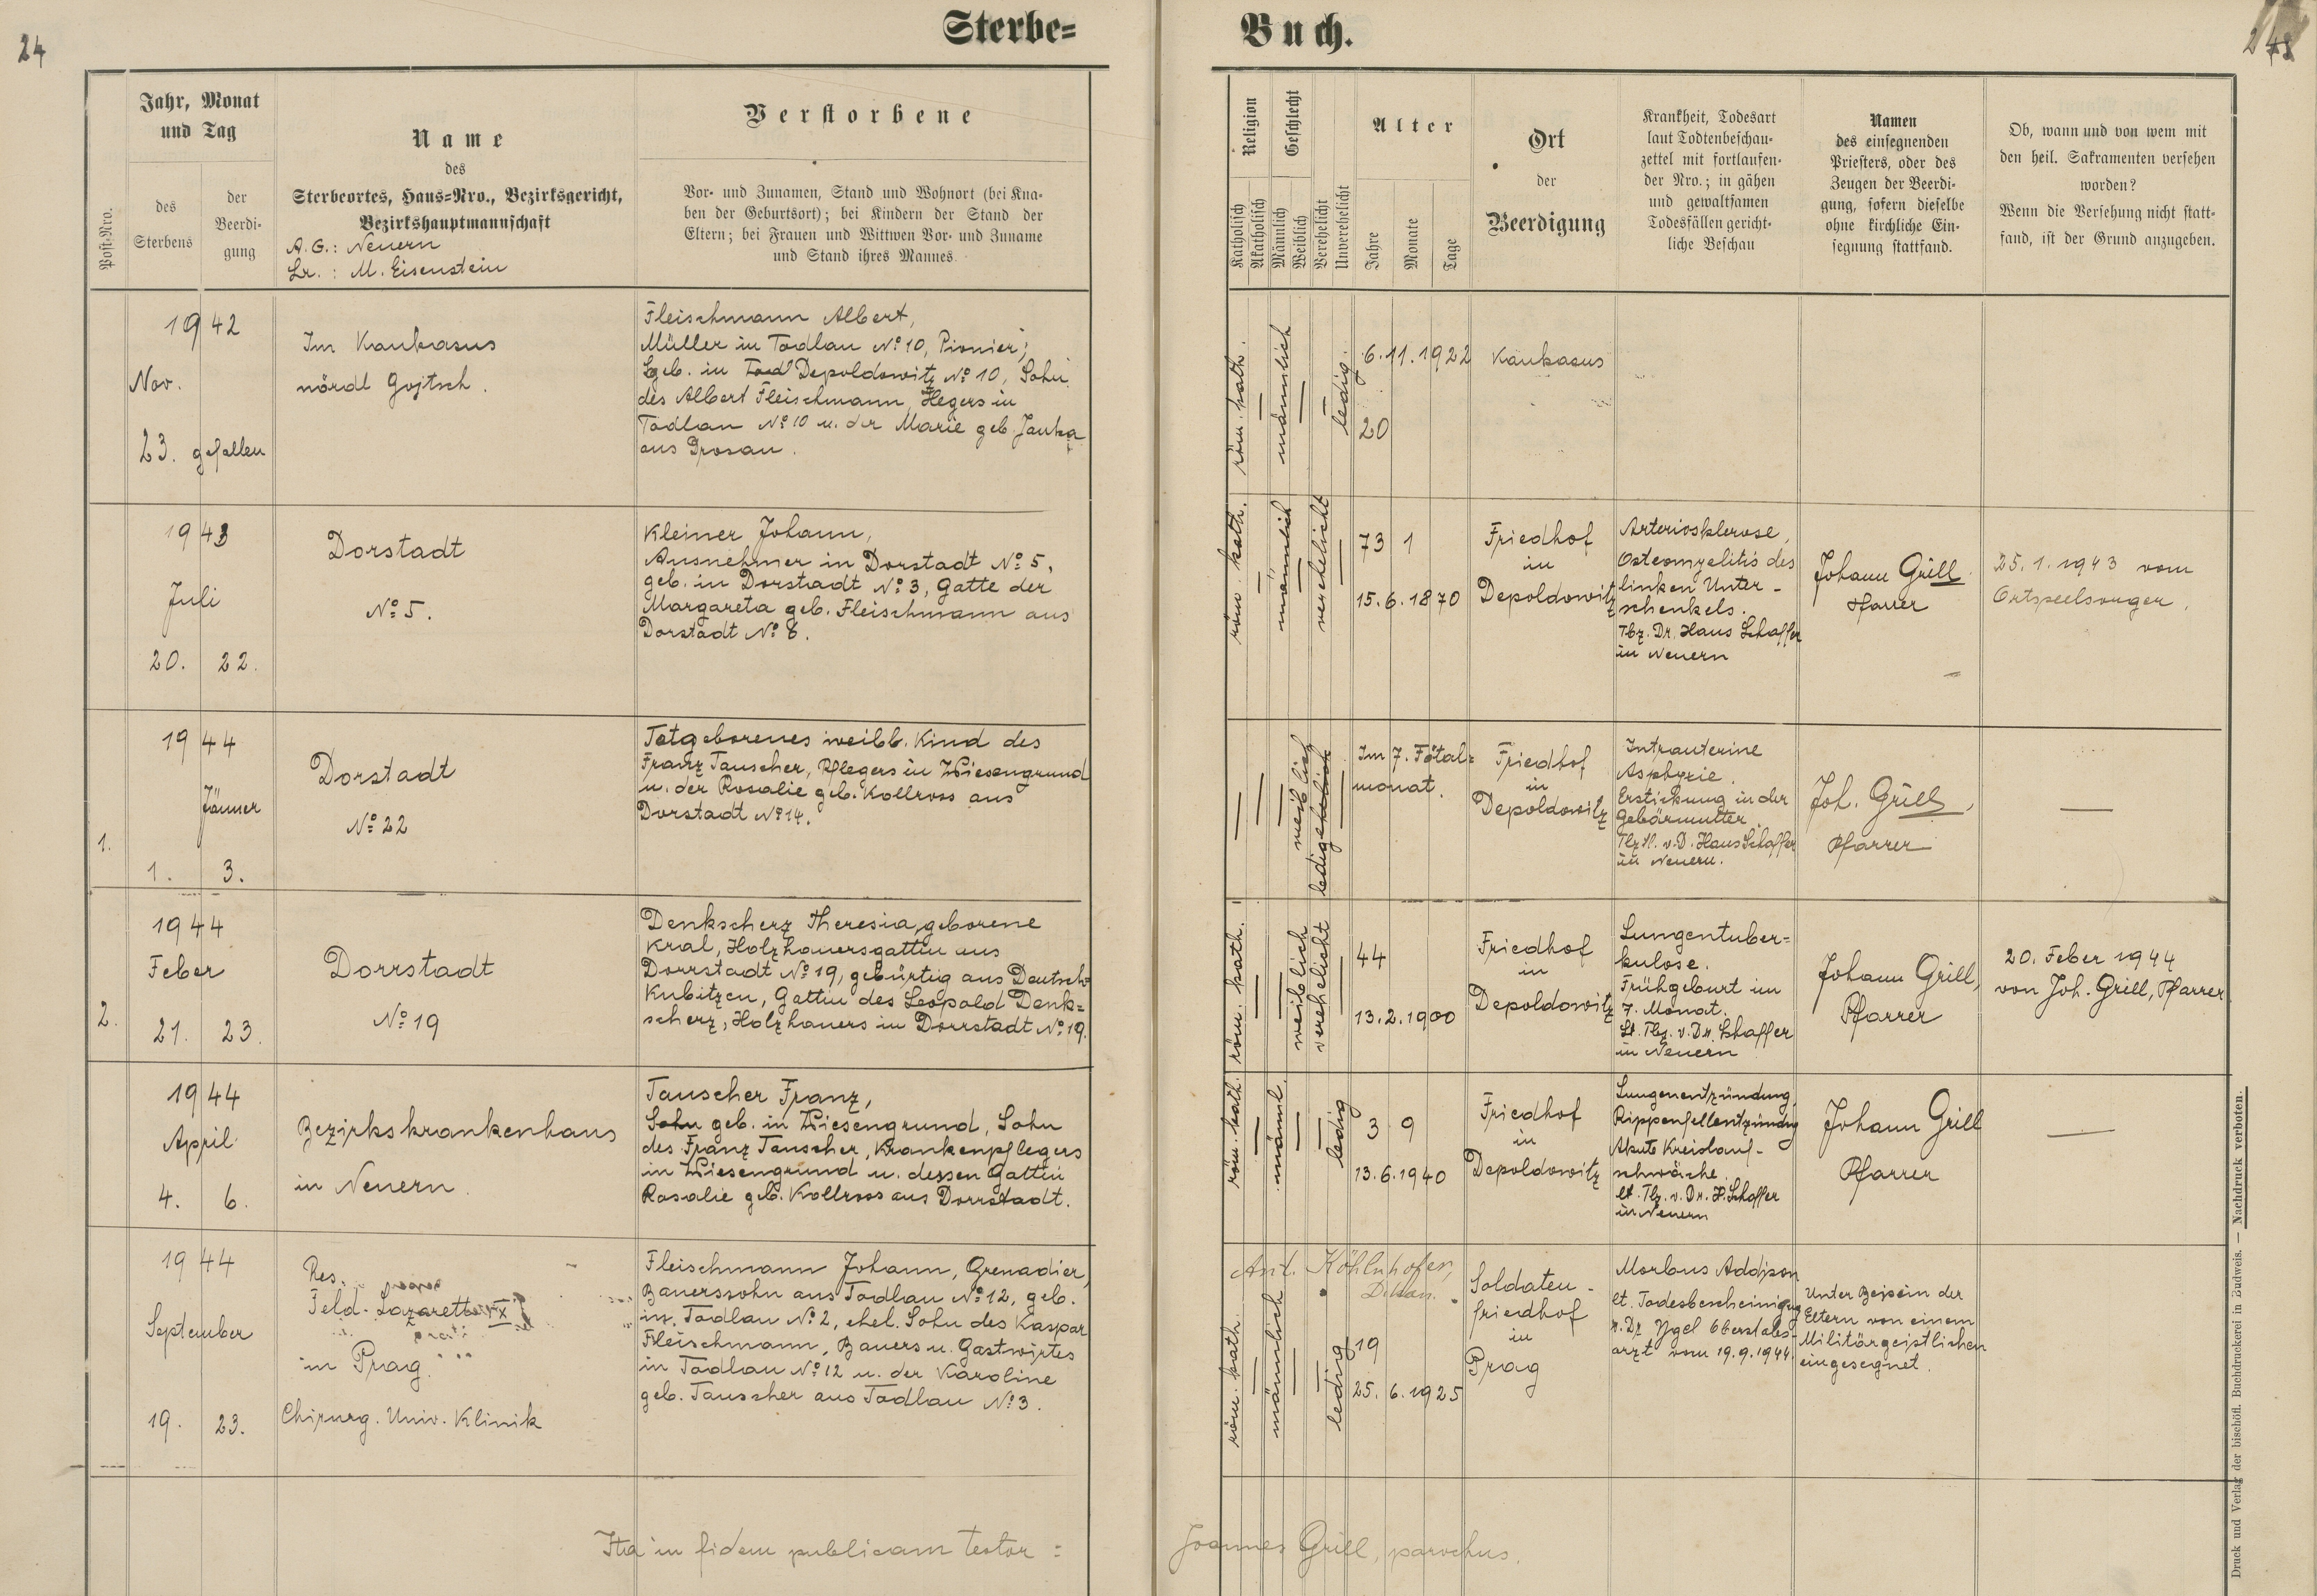 24
Sterbe=
Buch.
Post-Nro.
Jahr, Monat
und Tag
des
Sterbens
der
Beerdi-
gung
Name
des
Sterbeortes, Haus=Nro., Bezirksgericht,
Bezirkshauptmannschaft
A. G.: Neuern
Lr. : M. Eisenstein
Verstorbene
Vor- und Zunamen, Stand und Wohnort (bei Kna-
ben der Geburtsort); bei Kindern der Stand der
Eltern; bei Frauen und Wittwen Vor- und Zuname
und Stand ihres Mannes.
Religion
Katholisch
Akatholisch
Geschlecht
Männlich
Weiblich
Verehelicht
Unverehelicht
Alter
Jahre
Monate
Tage
Ort
der
Beerdigung
Krankheit, Todesart
laut Todtenbeschau-
zettel mit fortlaufen-
der Nro.; in gähen
und gewaltsamen
Todesfällen gericht-
liche Beschau
Namen
des einsegnenden
Priesters, oder des
Zeugen der Beerdi-
gung, sofern dieselbe
ohne kirchliche Ein-
segnung stattfand.
Ob, wann und von wem mit
den heil. Sakramenten versehen
worden?
Wenn die Versehung nicht statt-
fand, ist der Grund anzugeben.
1942
Nov.
23. gefallen
Im Kaukasus
nördl Gojtsch.
Fleischmann Albert,
Müller in Todlau No 10, Pionier;
geb. in Depoldowitz No 10, Sohn
des Albert Fleischmann, Hegers in
Todlau No 10 u. der Marie geb. Janka
aus Drosau.
röm. kath.
männlich
ledig.
6.11.1922
20
Kaukasus
1943
Juli
20. 22.
Dorstadt
No 5.
Kleiner Johann,
Ausnehmer in Dorstadt No 5,
geb. in Dorstadt No 3, Gatte der
Margareta geb. Fleischmann aus
Dorstadt No 6.
röm. kath.
männlich
verehelicht
73 1
15.6.1870
Friedhof
in
Depoldowitz
Arteriosklerose,
Osteomyelitis des
linken Unter-
schenkels.
Tbz. Dr. Hans Schaffer
in Neuern
Johann Grill
Pfarrer
25.1.1943 vom
Ortsseelsorger.
1.
1944
Jänner
1. 3.
Dorstadt
No 22
Totgeborenes weibl. Kind des
Franz Tauscher, Pflegers in Wiesengrund
u. der Rosalie geb. Kollross aus
Dorstadt No 14.
weiblich
ledig
Im 7. Fötal=
monat.
Friedhof
in
Depoldowitz
Intrauterine
Asphyxie.
Erstickung in der
Gebärmutter
v. D. Hans Schaffer
in Neuern.
Joh. Grill,
Pfarrer
2.
1944
Feber
21. 23.
Dorrstadt
No 19
Denkscherz Theresia, geborene
Kral, Holzhauersgattin aus
Dorrstadt No 19, gebürtig aus Deutsch=
Kubitzen, Gattin des Leopold Denk=
scherz, Holzhauers in Dorrstadt No 19.
röm. kath.
weiblich
verehelicht
44
13.2.1900
Friedhof
in
Depoldowitz
Lungentuber=
kulose.
Frühgeburt im
7. Monat.
lt. Tbz. v. Dr. Schaffer
in Neuern
Johann Grill,
Pfarrer
20. Feber 1944
von Joh. Grill, Pfarrer
1944
April
4. 6.
Bezirkskrankenhaus
in Neuern.
Tauscher Franz,
Sohn geb. in Wiesengrund, Sohn
des Franz Tauscher, Krankenpflegers
in Wiesengrund u. dessen Gattin
Rosalie geb. Kollross aus Dorrstadt.
röm. kath.
männl.
ledig
3 9
13.6.1940
Friedhof
in
Depoldowitz
Lungenentzündung,
Rippenfellentzündung
Akute Kreislauf-
schwäche
lt. Tbz. v. Dr. H. Schaffer
in Neuern
Johann Grill
Pfarrer
1944
September
19. 23.
Res.
Feld-Lazarett XI
in Prag.
Chirurg. Univ. Klinik
Fleischmann Johann, Grenadier,
Bauerssohn aus Todlau No 12, geb.
in Todlau No 2, ehel. Sohn des Kaspar
Fleischmann, Bauers u. Gastwirtes
in Todlau No 12 u. der Karoline
geb. Tauscher aus Todlau No 3.
röm. kath.
männlich
ledig
Ant. Köhlnhofer,
Dekan.
19
25.6.1925
Soldaten-
friedhof
in
Prag
Morbus Addison
lt. Todesbescheinigung
v. Dr Ygel Oberstabs-
arzt vom 19.9.1944.
Unter Beisein der
Eltern von einem
Militärgeistlichen
eingesegnet.
Ita in fidem publicam testor :
Joannes Grill, parochus.
Druck und Verlag der bischöfl. Buchdruckerei in Budweis. — Nachdruck verboten.